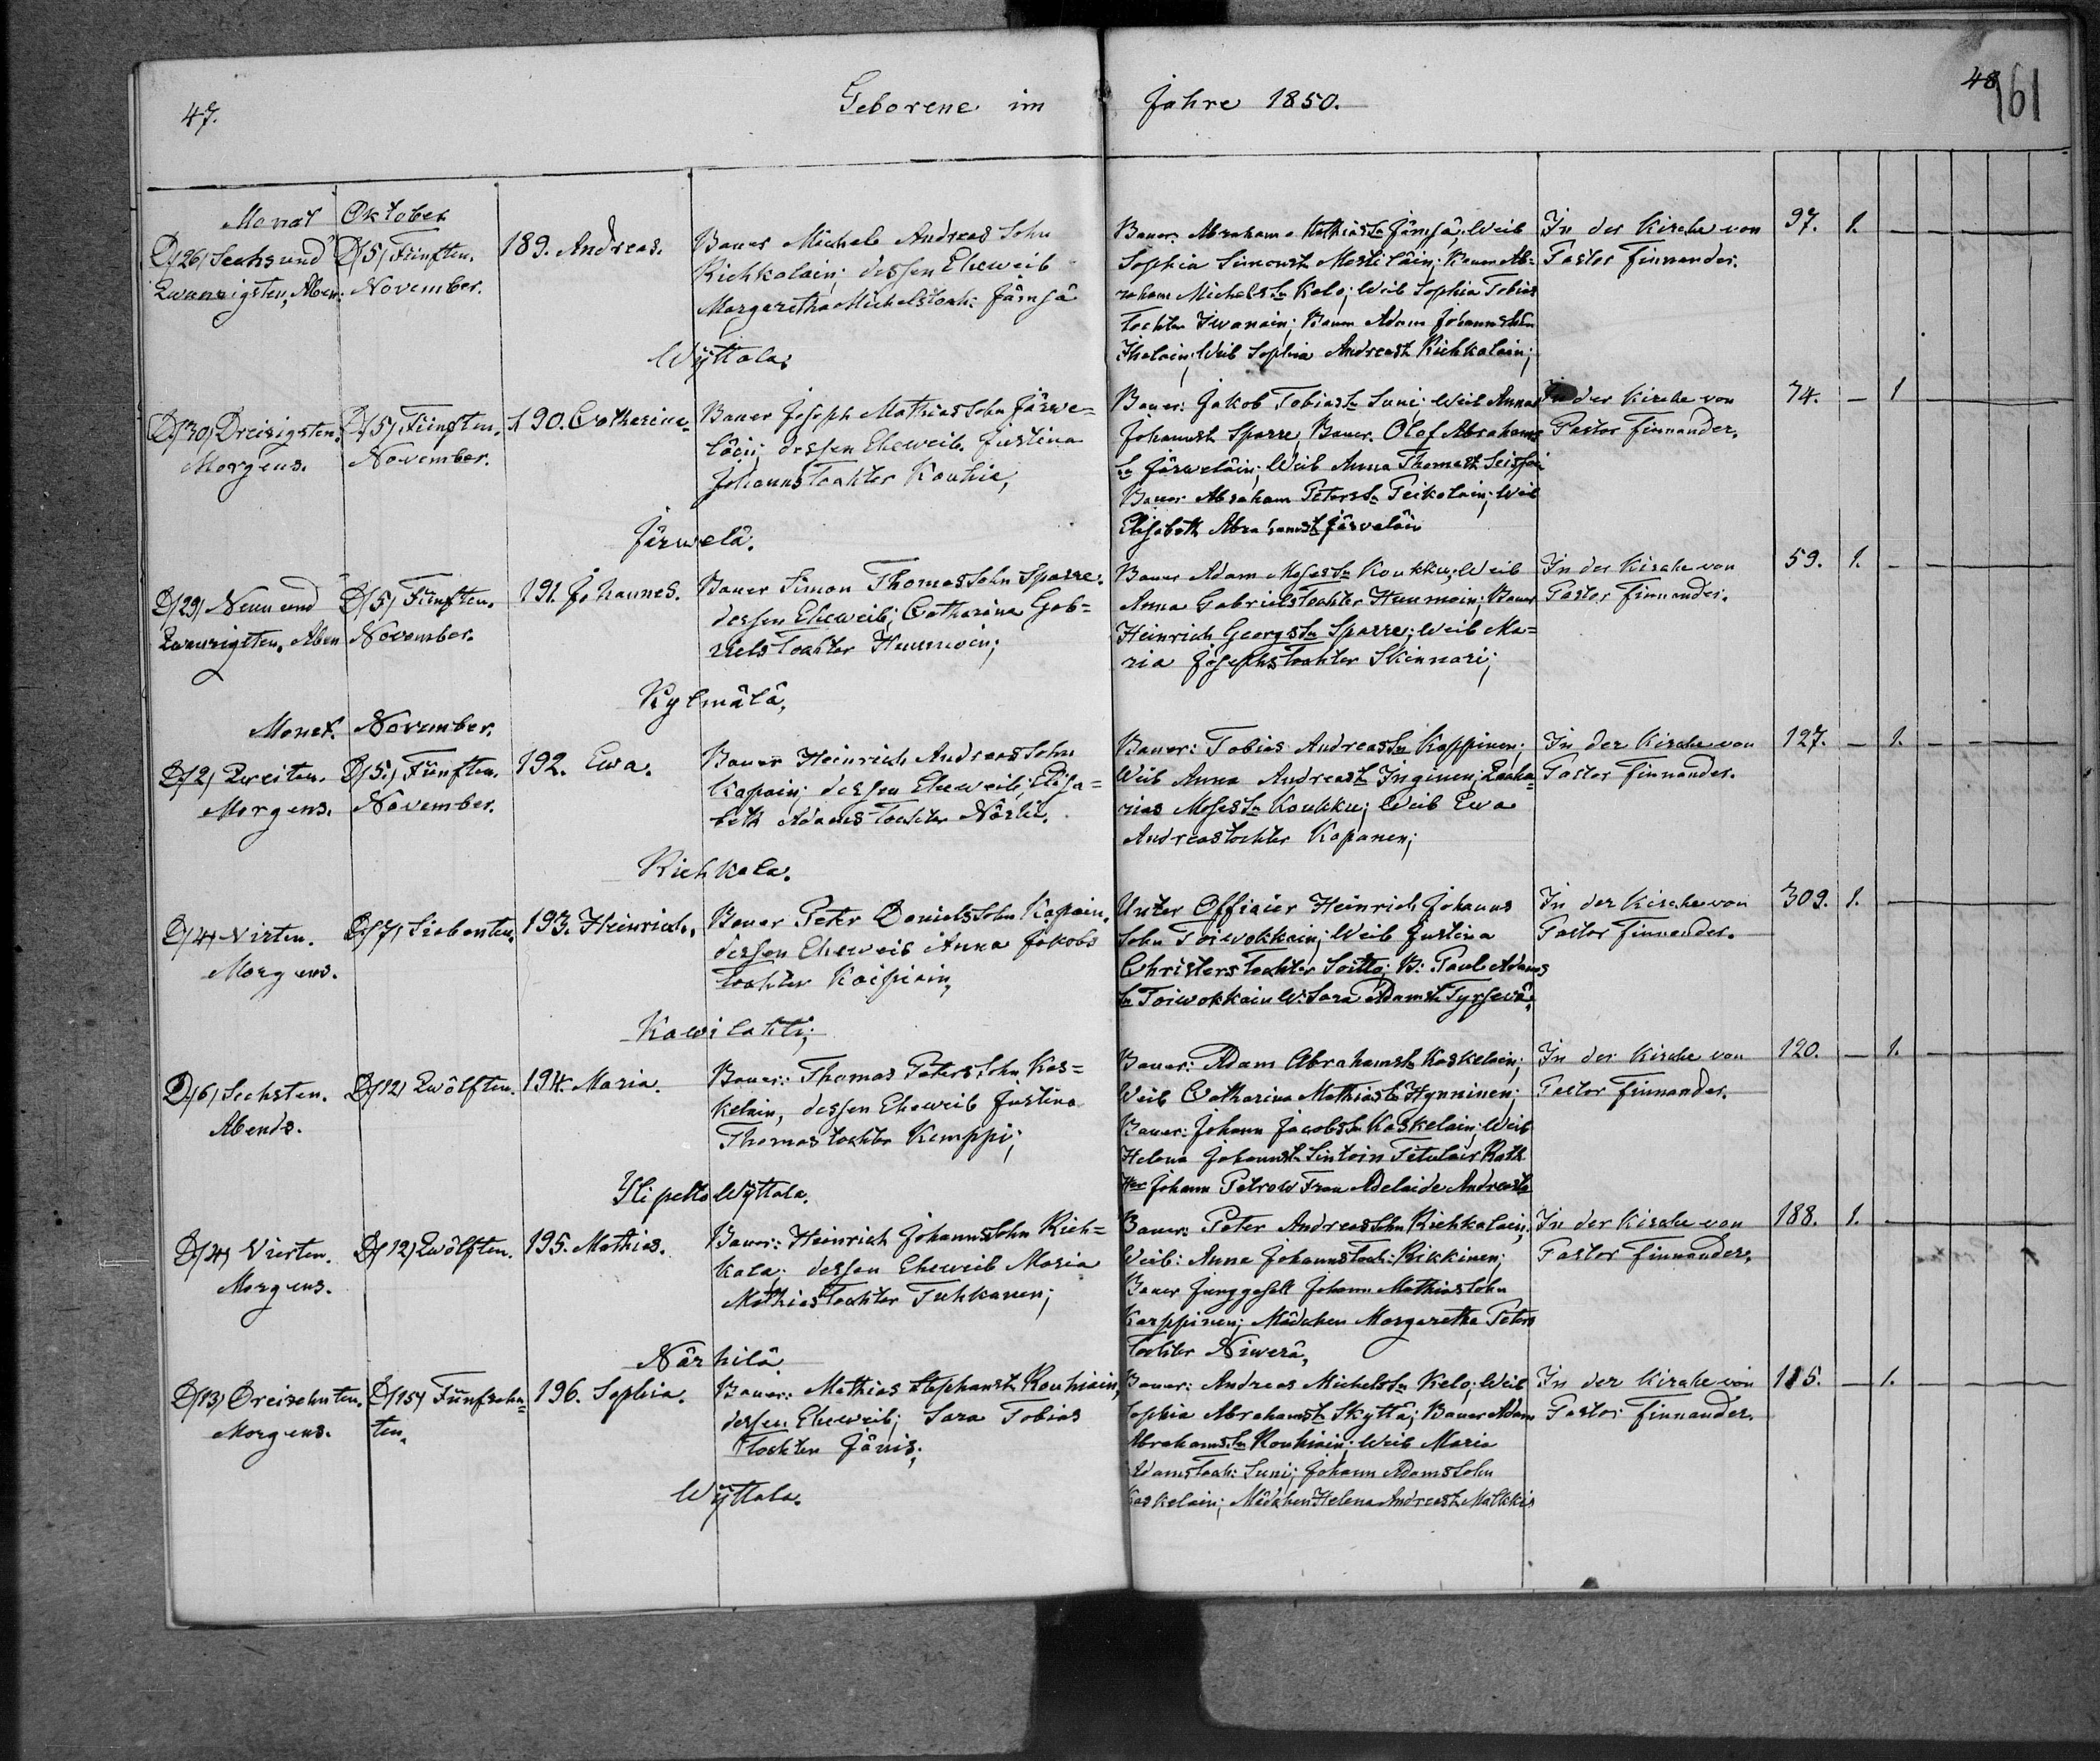 47.
Geborene im Jahre 1850.
48
161
Monat Oktober
D/26/ Sechs und
Zwanzigsten, Aben:
D/5/ Fünften.
November.
189. Andreas.
Bauer Michele Andreas Sohn
Richkalain; dessen Eheweib
Margaretha Michelstocht: Jämsä
Wÿttala;
Bauer: Abraham Mathias Sn Jämsä; Weib
Sophia Simonst Mostiläin; Bauer Ab=
raham Michels Sn Kelo; Weib Sophia Tobias
Tochter Iwanain; Bauer Adam Johanns Sohn
Ihalain; Weib Sophia Andreast Richkalain;
In der Kirche von
Pastor Finnander.
97. 1.
D/30/ Dreisigsten.
Morgens.
D/5/ Fünften.
November.
190. Catherine
Bauer Joseph Mathias Sohn Järwe=
läin; dessen Eheweib. Justina
Johanns Tochter Kouhia,
Järwelä.
Bauer: Jakob Tobias Sn Suni; Weib Anna
Johannst Sparre, Bauer. Olof Abrahams
Sn Järweläin; Weib Anna Thomast
Bauer Abraham Peters Sn Peikolain; Weib
Elisabeth Abrahamst Järveläin
In der Kirche von
Pastor Finnander.
74. – 1
D/29/ Neun und
Zwanzigsten. Aben
D/5/ Fünften.
November.
191. Johannes.
Bauer Simon Thomas Sohn Sparre.
dessen Eheweib; Catharina Gab=
riels Tochter Huumoin;
Kylmälä,
Bauer Adam Moses Sn Koukku; Weib
Anna Gabriels Tochter Huumoin; Bauer
Heinrich Georgs Sn Sparre; Weib Ma=
ria Josephs Tochter Skinnari;
In der Kirche von
Pastor Finnander.
59. 1.
Monat. November.
D/2/ Zweiten.
Morgens.
D/5/ Fünften.
November.
192. Ewa.
Bauer Heinrich Andreas Sohn
Kapain; dessen Eheweib; Elisa=
beth Adams Tochter Närhi.
Richkala.
Bauer: Tobias Andreas Sn Kappinen;
Weib Anna Andreast Inginen; Zacha=
rias Moses Sn Koukku; Weib Ewa
Andreastochter Kapanen;
In der Kirche von
Pastor Finnander.
127. – 1.
D/4/ Virten.
Morgens.
D/7/ Siebenten.
193. Heinrich.
Bauer Peter Daniels Sohn Kapain,
dessen Eheweib Anna Jakobs
Tochter Kaipiain,
Kawilahti;
Unter Officier Heinrich Johanns
Sohn Toiwokkain; Weib Justina
Christers Tochter Soitto; B: Paul Adams
Sn Toiwokkain W: Sara Adamst Tyrsewä,
In der Kirche von
Pastor Finnander.
309. 1.
D/6/ Sechsten.
Abends.
D/12/ Zwölften.
194. Maria.
Bauer: Thomas Peters Sohn Kos=
kelain, dessen Eheweib Justina
Thomastochter Kemppi;
Ylipelto Wÿttala.
Bauer: Adam Abrahams Sn Koskelain;
Weib Catharina Mathiast Hynninen;
Bauer: Johann Jacobs Sn Koskelain; Weib
Helena Johannst Sintoin Titulair Rath
Her Johann Petrow Frau Adelaide Andreast
In der Kirche von
Pastor Finnander.
120. – 1.
D/4/ Vierten.
Morgens.
D/12/ Zwölften.
195. Mathias.
Bauer: Heinrich Johanns Sohn Rich=
kala; dessen Eheweib Maria
Mathias Tochter Tuhkanen;
Närhilä
Bauer: Peter Andreas Sohn Richkalain;
Weib: Anna Johannstoch: Rikkinen;
Bauer Junggesell Johann Mathias Sohn
Karppinen; Mädchen Margaretha Peters
Tochter Niwerä,
In der Kirche von
Pastor Finnander.
188. 1.
D/13/ Dreizehnten.
Morgens.
D/15/ Fünfzehn=
ten.
196. Sophia.
Bauer: Mathias Stephanst Rouhiain,
dessen Eheweib; Sara Tobias
Tochter Jänis;
Wÿttala.
Bauer: Andreas Michels Sn Kelo; Weib
Sophia Abrahamst Skyttä; Bauer Adam
Abrahams Sn Rouhiain; Weib Maria
Adamstoch: Suni; Johann Adams Sohn
Koskelain; Mädchen Helena Andreast Malkkis
In der Kirche von
Pastor Finnander.
115. – 1.